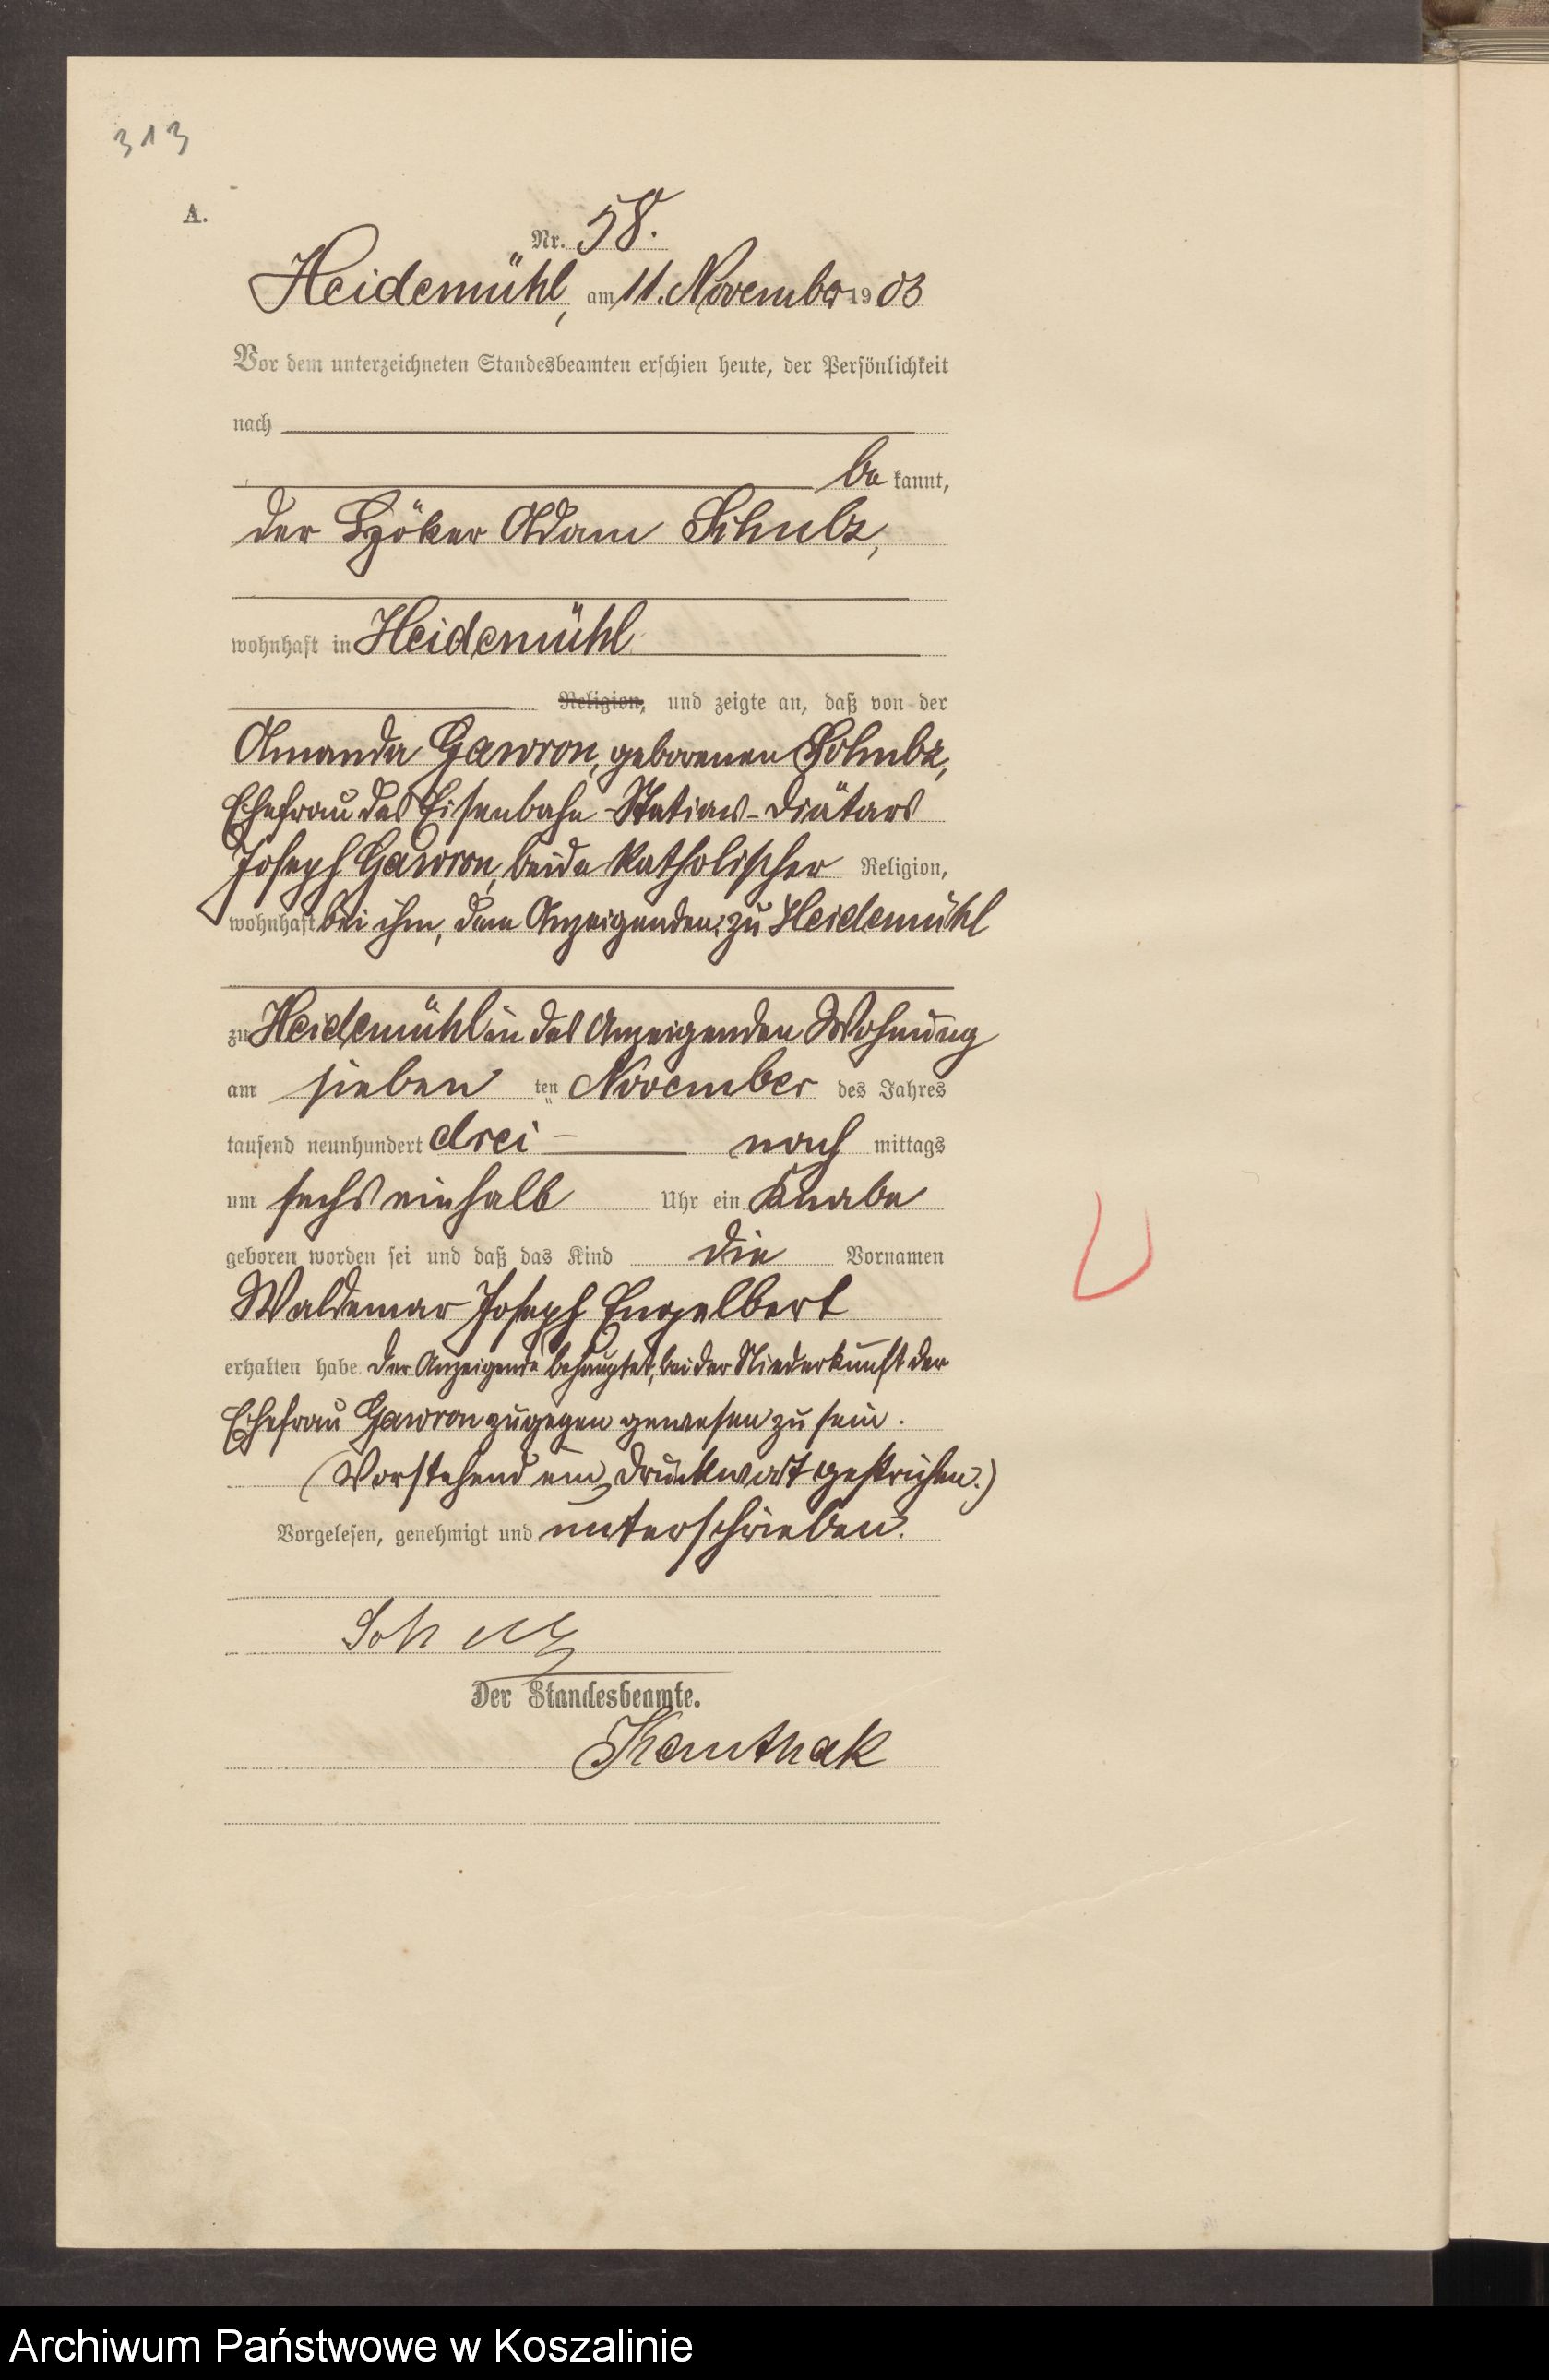 313
A.
Nr. 58.
Heidemühl, am 11. November 1903
Vor dem unterzeichneten Standesbeamten erschien heute, der Persönlichkeit
nach
be kannt,
der Adam Schulz,
wohnhaft in Heidemühl
Religion, und zeigte an, daß von der
Amanda Gawron, geborenen Schulz,
Ehefrau des Eisenbahn-Stations-Diätars
Joseph Gawron, beide katholischer Religion,
wohnhaft bei ihm, dem Anzeigenden, zu Heidemühl
zu Heidemühl in des Anzeigenden Wohnung
am sieben ten November des Jahres
tausend neunhundert drei nach mittags
um sechs einhalb Uhr ein Knabe
geboren worden sei und daß das Kind die Vornamen
Waldemar Joseph Engelbert
erhalten habe. Der Anzeigende behauptet, bei der Niederkunft der
Ehefrau Gawron zugegen gewesen zu sein.
(Vorstehend ein Druckwort gestrichen.)
Vorgelesen, genehmigt und unterschrieben.
Schulz
Der Standesbeamte.
Kanthak
Archiwum Państwowe w Koszalinie